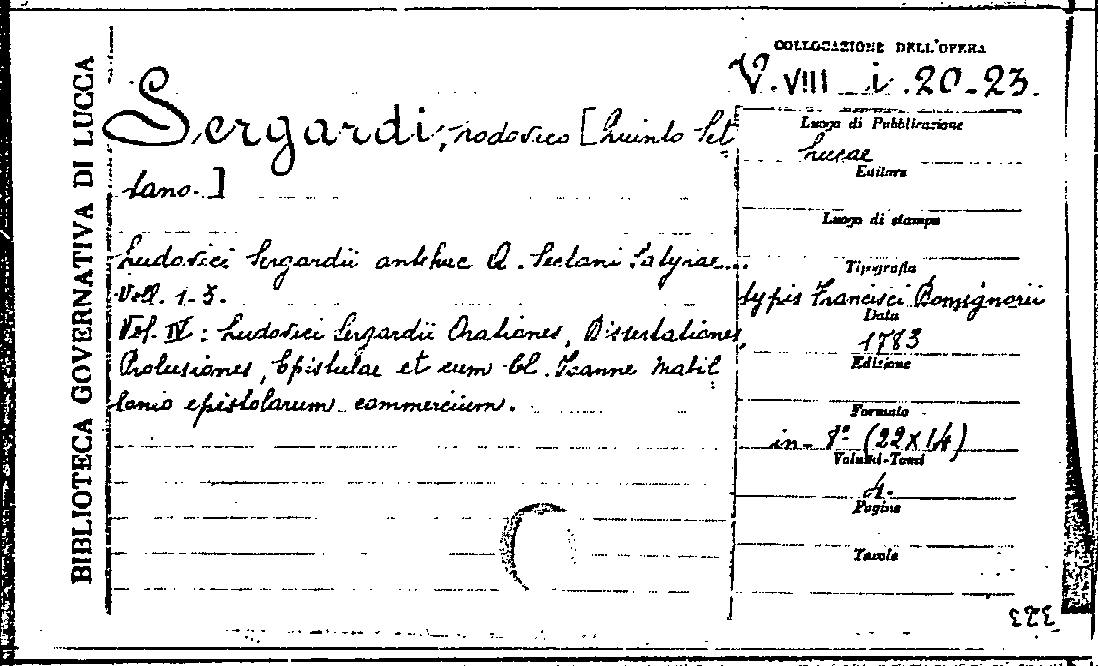 BIBLIOTECA GOVERNATIVA DI LUCCA
Sergardi, Lodovico [Quinto Set
tano.]
Ludovici Sergardii antehac Q. Sectani Satyrae...
Voll. 1-3.
Vol. IV: Ludovici Sergardii Orationes, Dissertationes,
Prolusiones, Epistulae et cum Cl. Ioanne Mabil
lonio epistolarum commercium.
COLLOCAZIONE DELL'OPERA
V. VIII i. 20-23.
Luogo di Pubblicazione
Lucae
Editore
Luogo di stampa
Tipografia
typis Francisci Bonsignorii
Data
1783
Edizione
Formato
in-8º (22x14)
Volumi-Tomi
4.
Pagine
Tavole
323